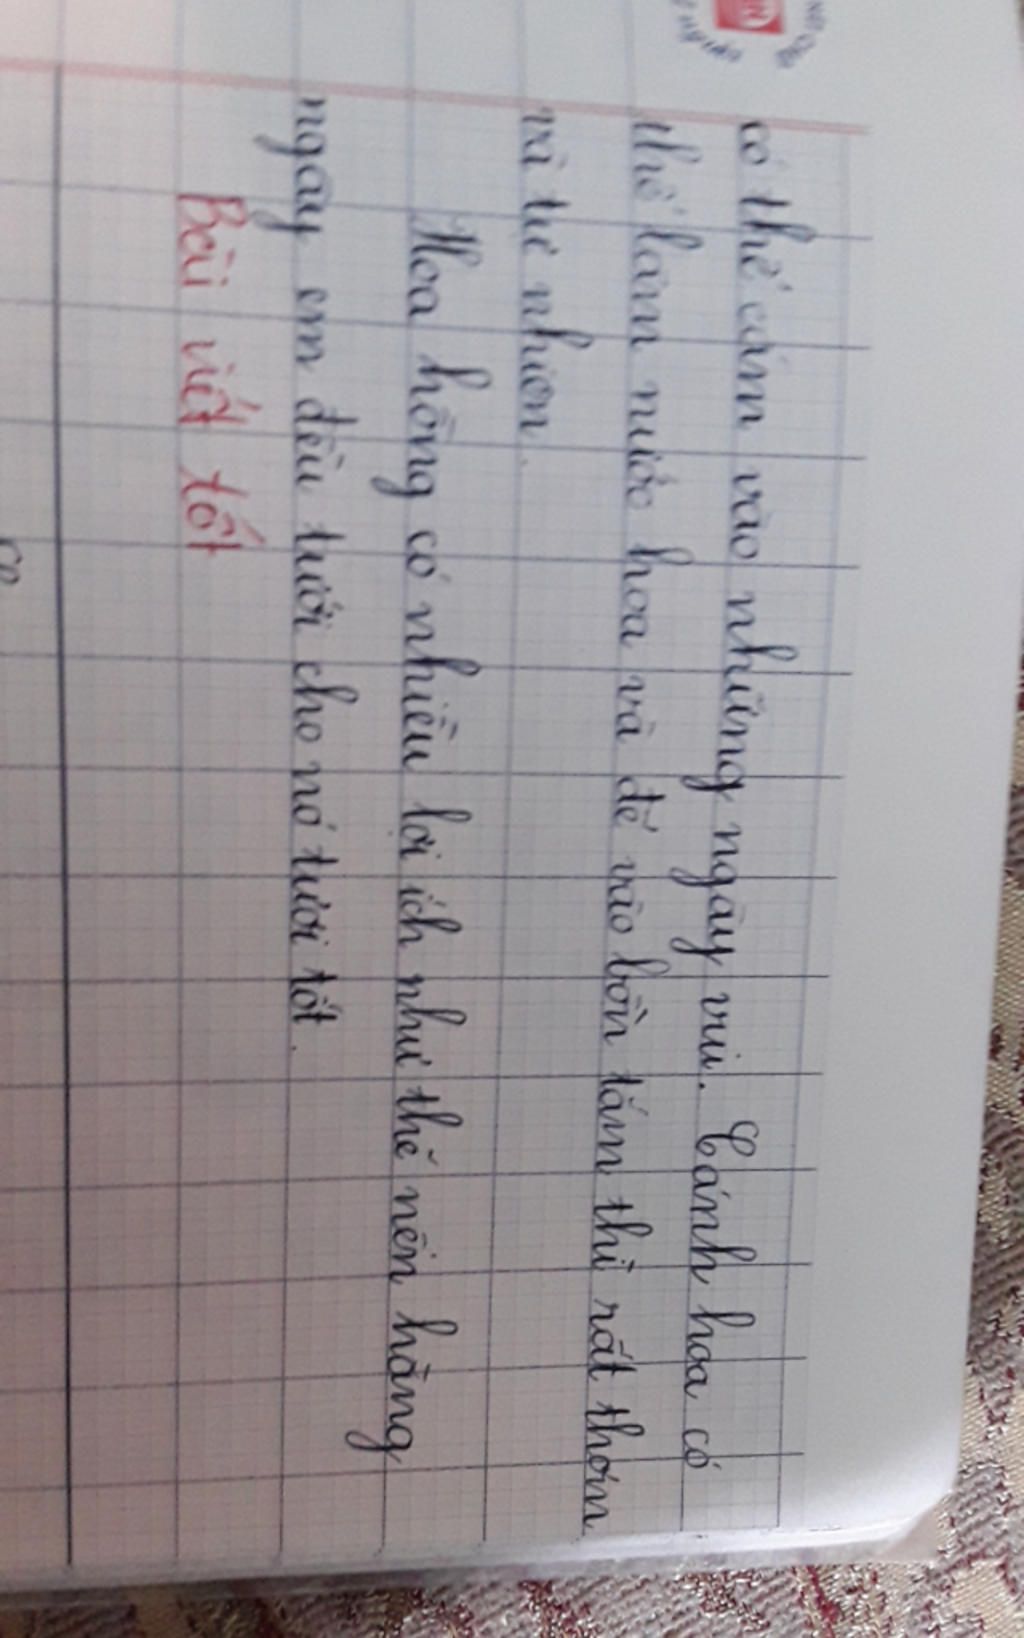 có thể cắm vào những ngày vui. Cánh hoa có
thể làm nước hoa và để vào bồn tắm thì rất thơm
và tự nhiên.
Hoa hồng có nhiều lợi ích như thế nên hằng
ngày em đều tưới cho nó tươi tốt.
Bài viết tốt